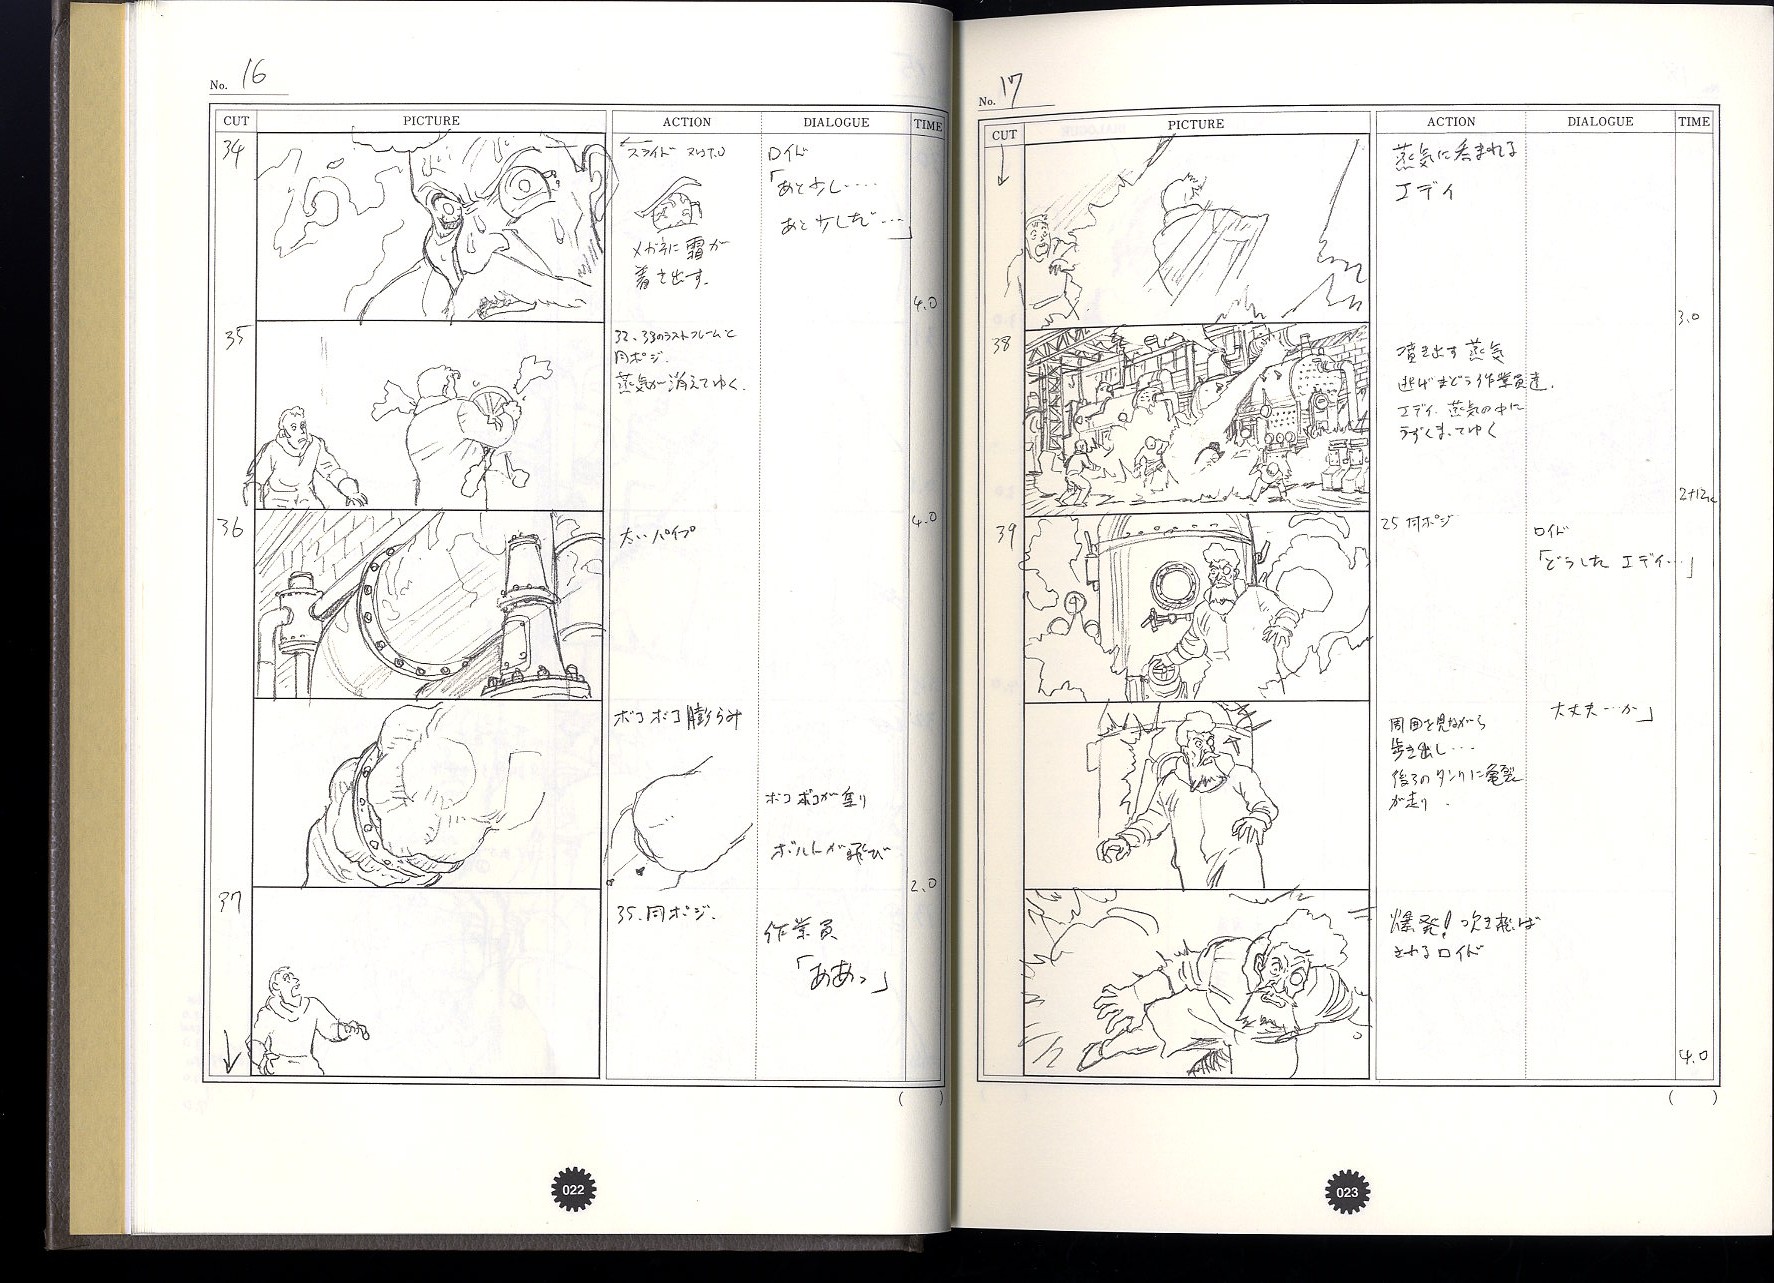 No. 16
CUT
PICTURE
ACTION
DIALOGUE
TIME
34
スライド
メガネに霜が
着き出す。
ロイド
「あと少し‥‥
あと少しだ‥‥」
4.0
35
32、33のラストフレームと
同ポジ.
蒸気が消えてゆく.
4.0
36
太いパイプ
ボコボコ膨らみ
ボコボコが
ボルトが飛び
2.0
37
35.同ポジ.
作業員
「ああっ」
( )
022
No. 17
CUT
PICTURE
ACTION
DIALOGUE
TIME
蒸気に呑まれる
エディ
3.0
38
噴き出す蒸気
逃げまどう作業員達.
エディ 蒸気の中に
うずくまってゆく
2+12
39
25同ポジ
ロイド
「どうした エディ‥」
周囲を見ながら
歩き出し‥‥
後ろのタンクに亀裂
が走り.
大丈夫‥か」
爆発! 吹き飛ば
されるロイド
4.0
( )
023